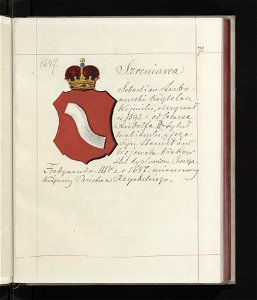 7
1647.
Szreniawa
Sebastian Lubo-
mirski Kasztelan
Wojnicki, otrzymał
r. 1595 r. od Cesarza
Rudolfa II tytuł
hrabiowski, a jego
syn Stanisław
Wojewoda Krakow-
ski dyplomem Cesarza
Ferdynanda III z r. 1647. mianowany
księciem Państwa Rzymskiego.